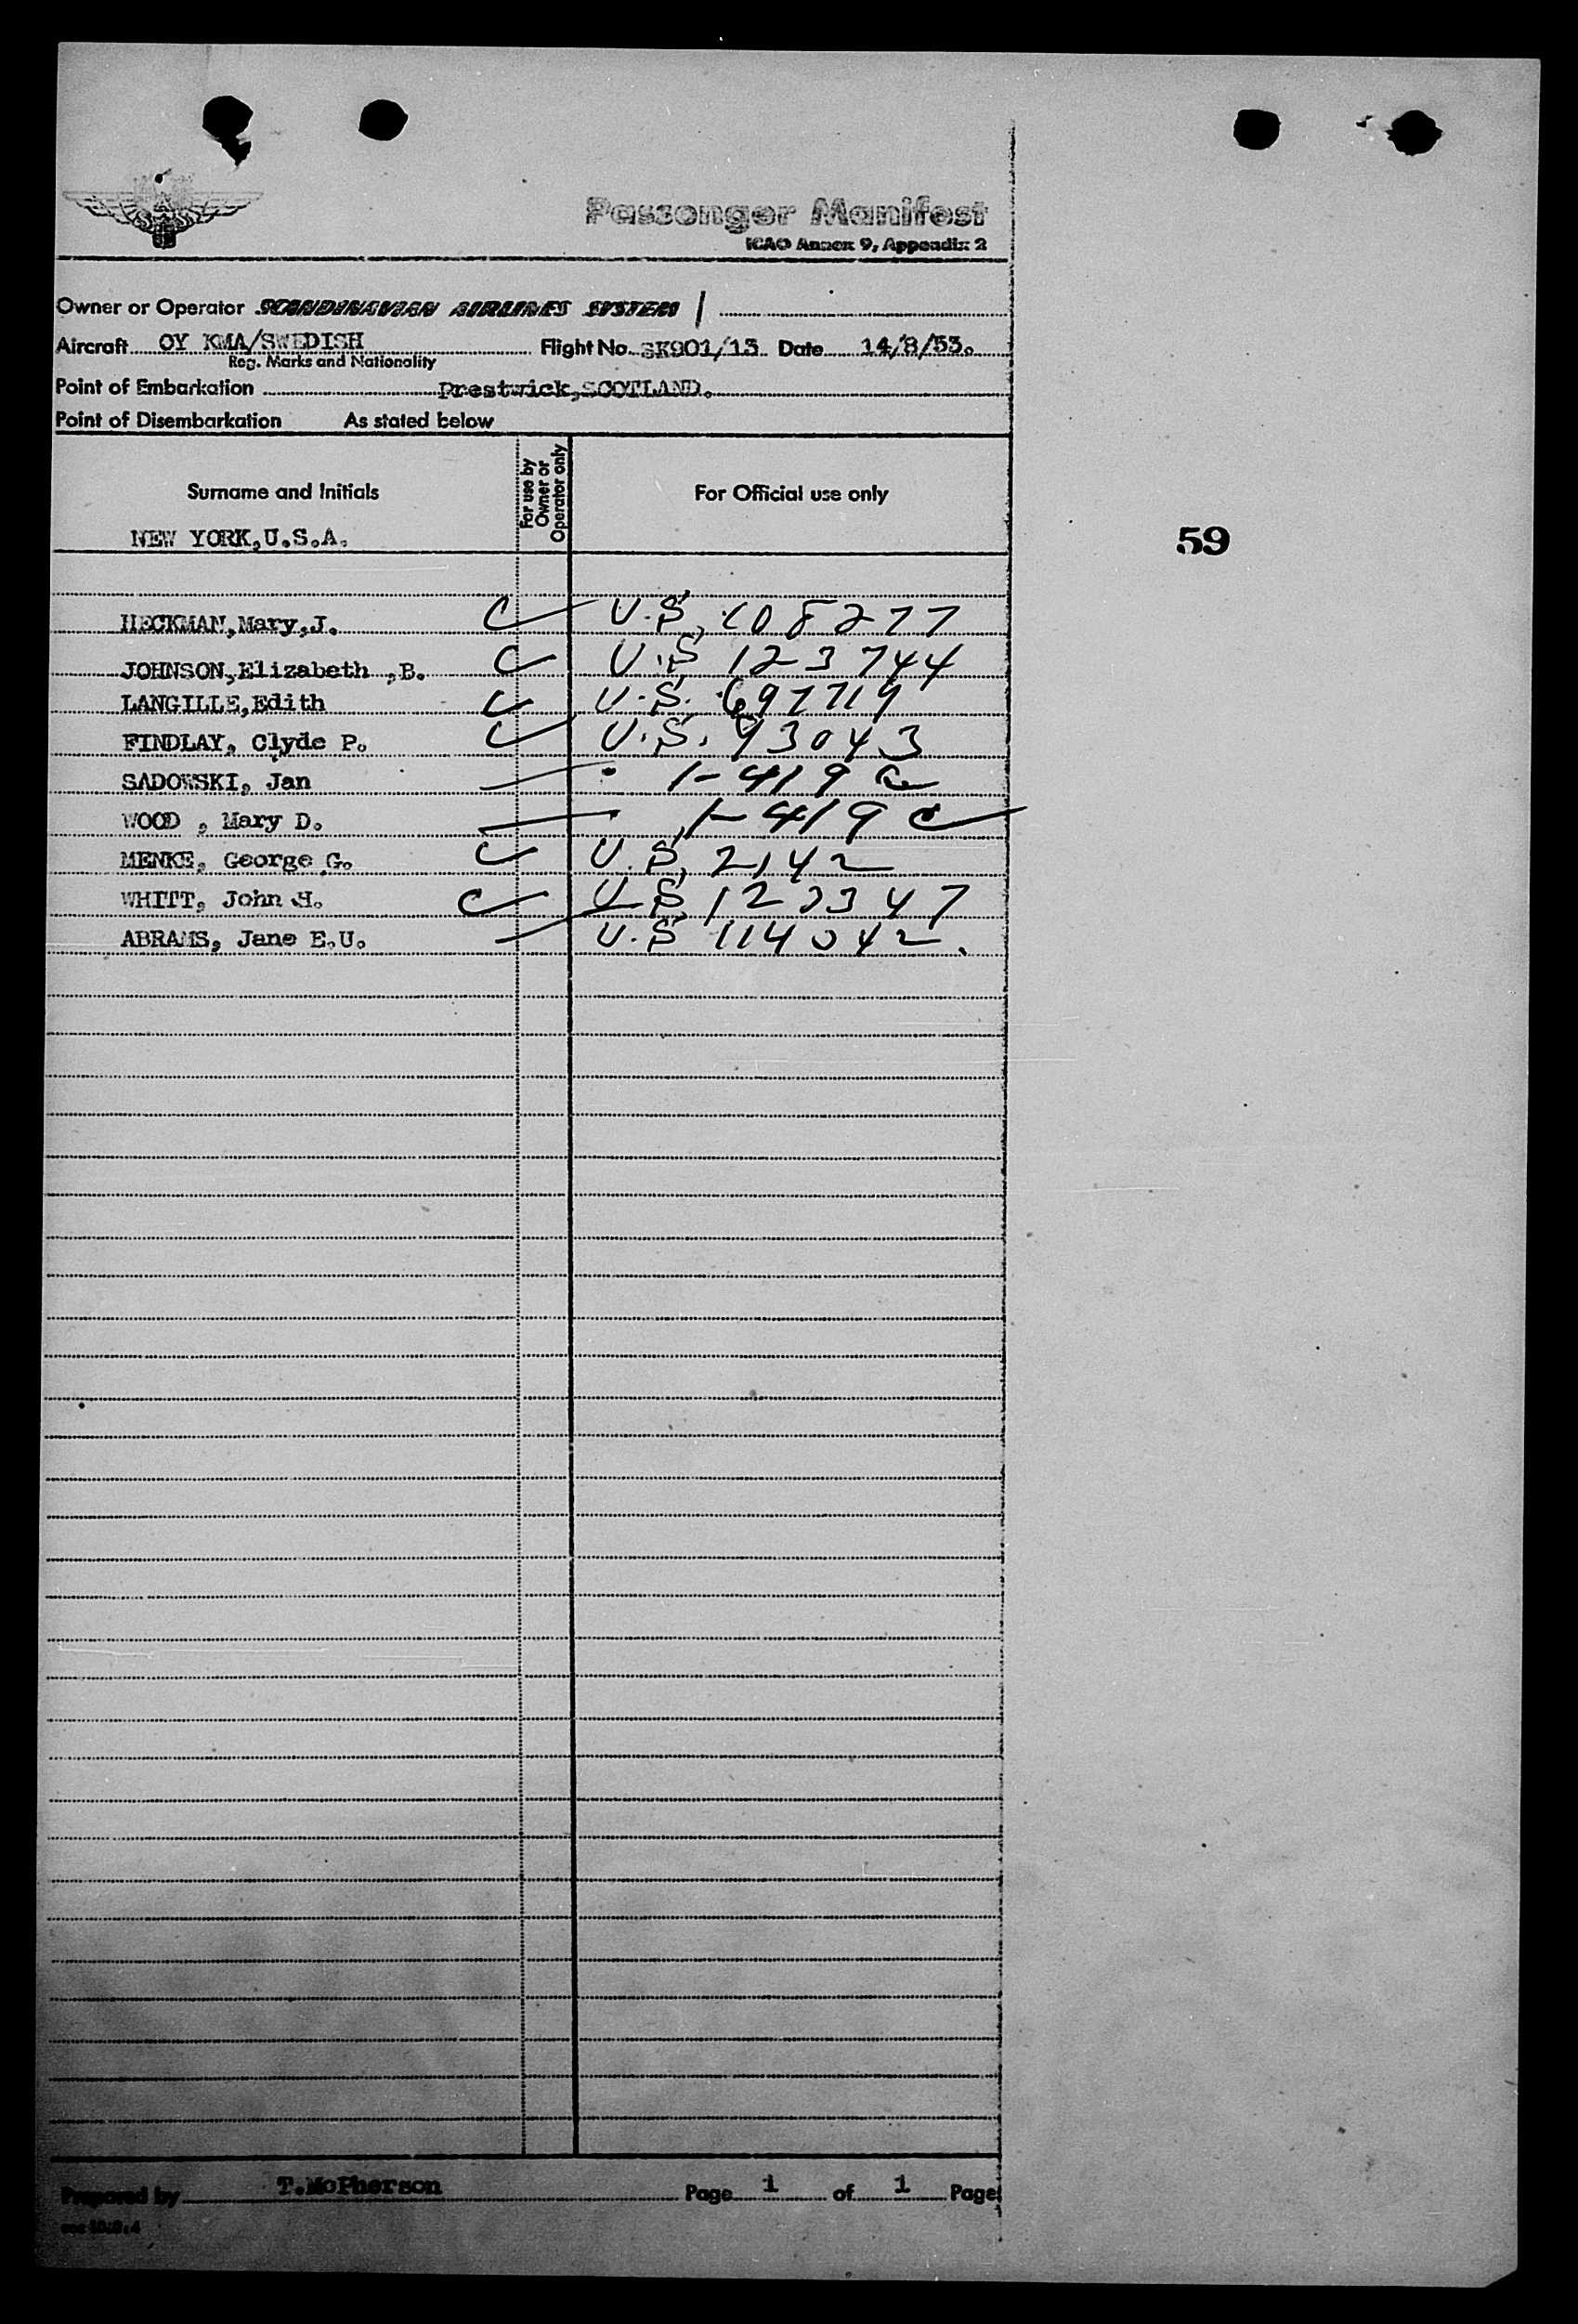 Passenger Manifest
ICAO Annex 9, Appendix 2
Owner or Operator SCANDINAVIAN AIRLINES SYSTEM
Aircraft OY KMA/SWEDISH Flight No. SK901/13 Date 14/8/53.
Reg. Marks and Nationality
Point of Embarkation Prestwick,SCOTLAND.
Point of Disembarkation As stated below
Surname and Initials For use by Owner or Operator only For Official use only
NEW YORK,U.S.A.
59
HECKMAN,Mary,J. U.S. 108277
JOHNSON,Elizabeth ,B. U.S 123744
LANGILLE,Edith U.S. 697719
FINDLAY, Clyde P. U.S. 93043
SADOWSKI, Jan 1-419
WOOD , Mary D. 1-419
MENKE, George G. U.S. 2142
WHITT, John H. U.S. 123347
ABRAMS, Jane E.U. U.S 114042
Prepared by T.McPherson Page 1 of 1 Page